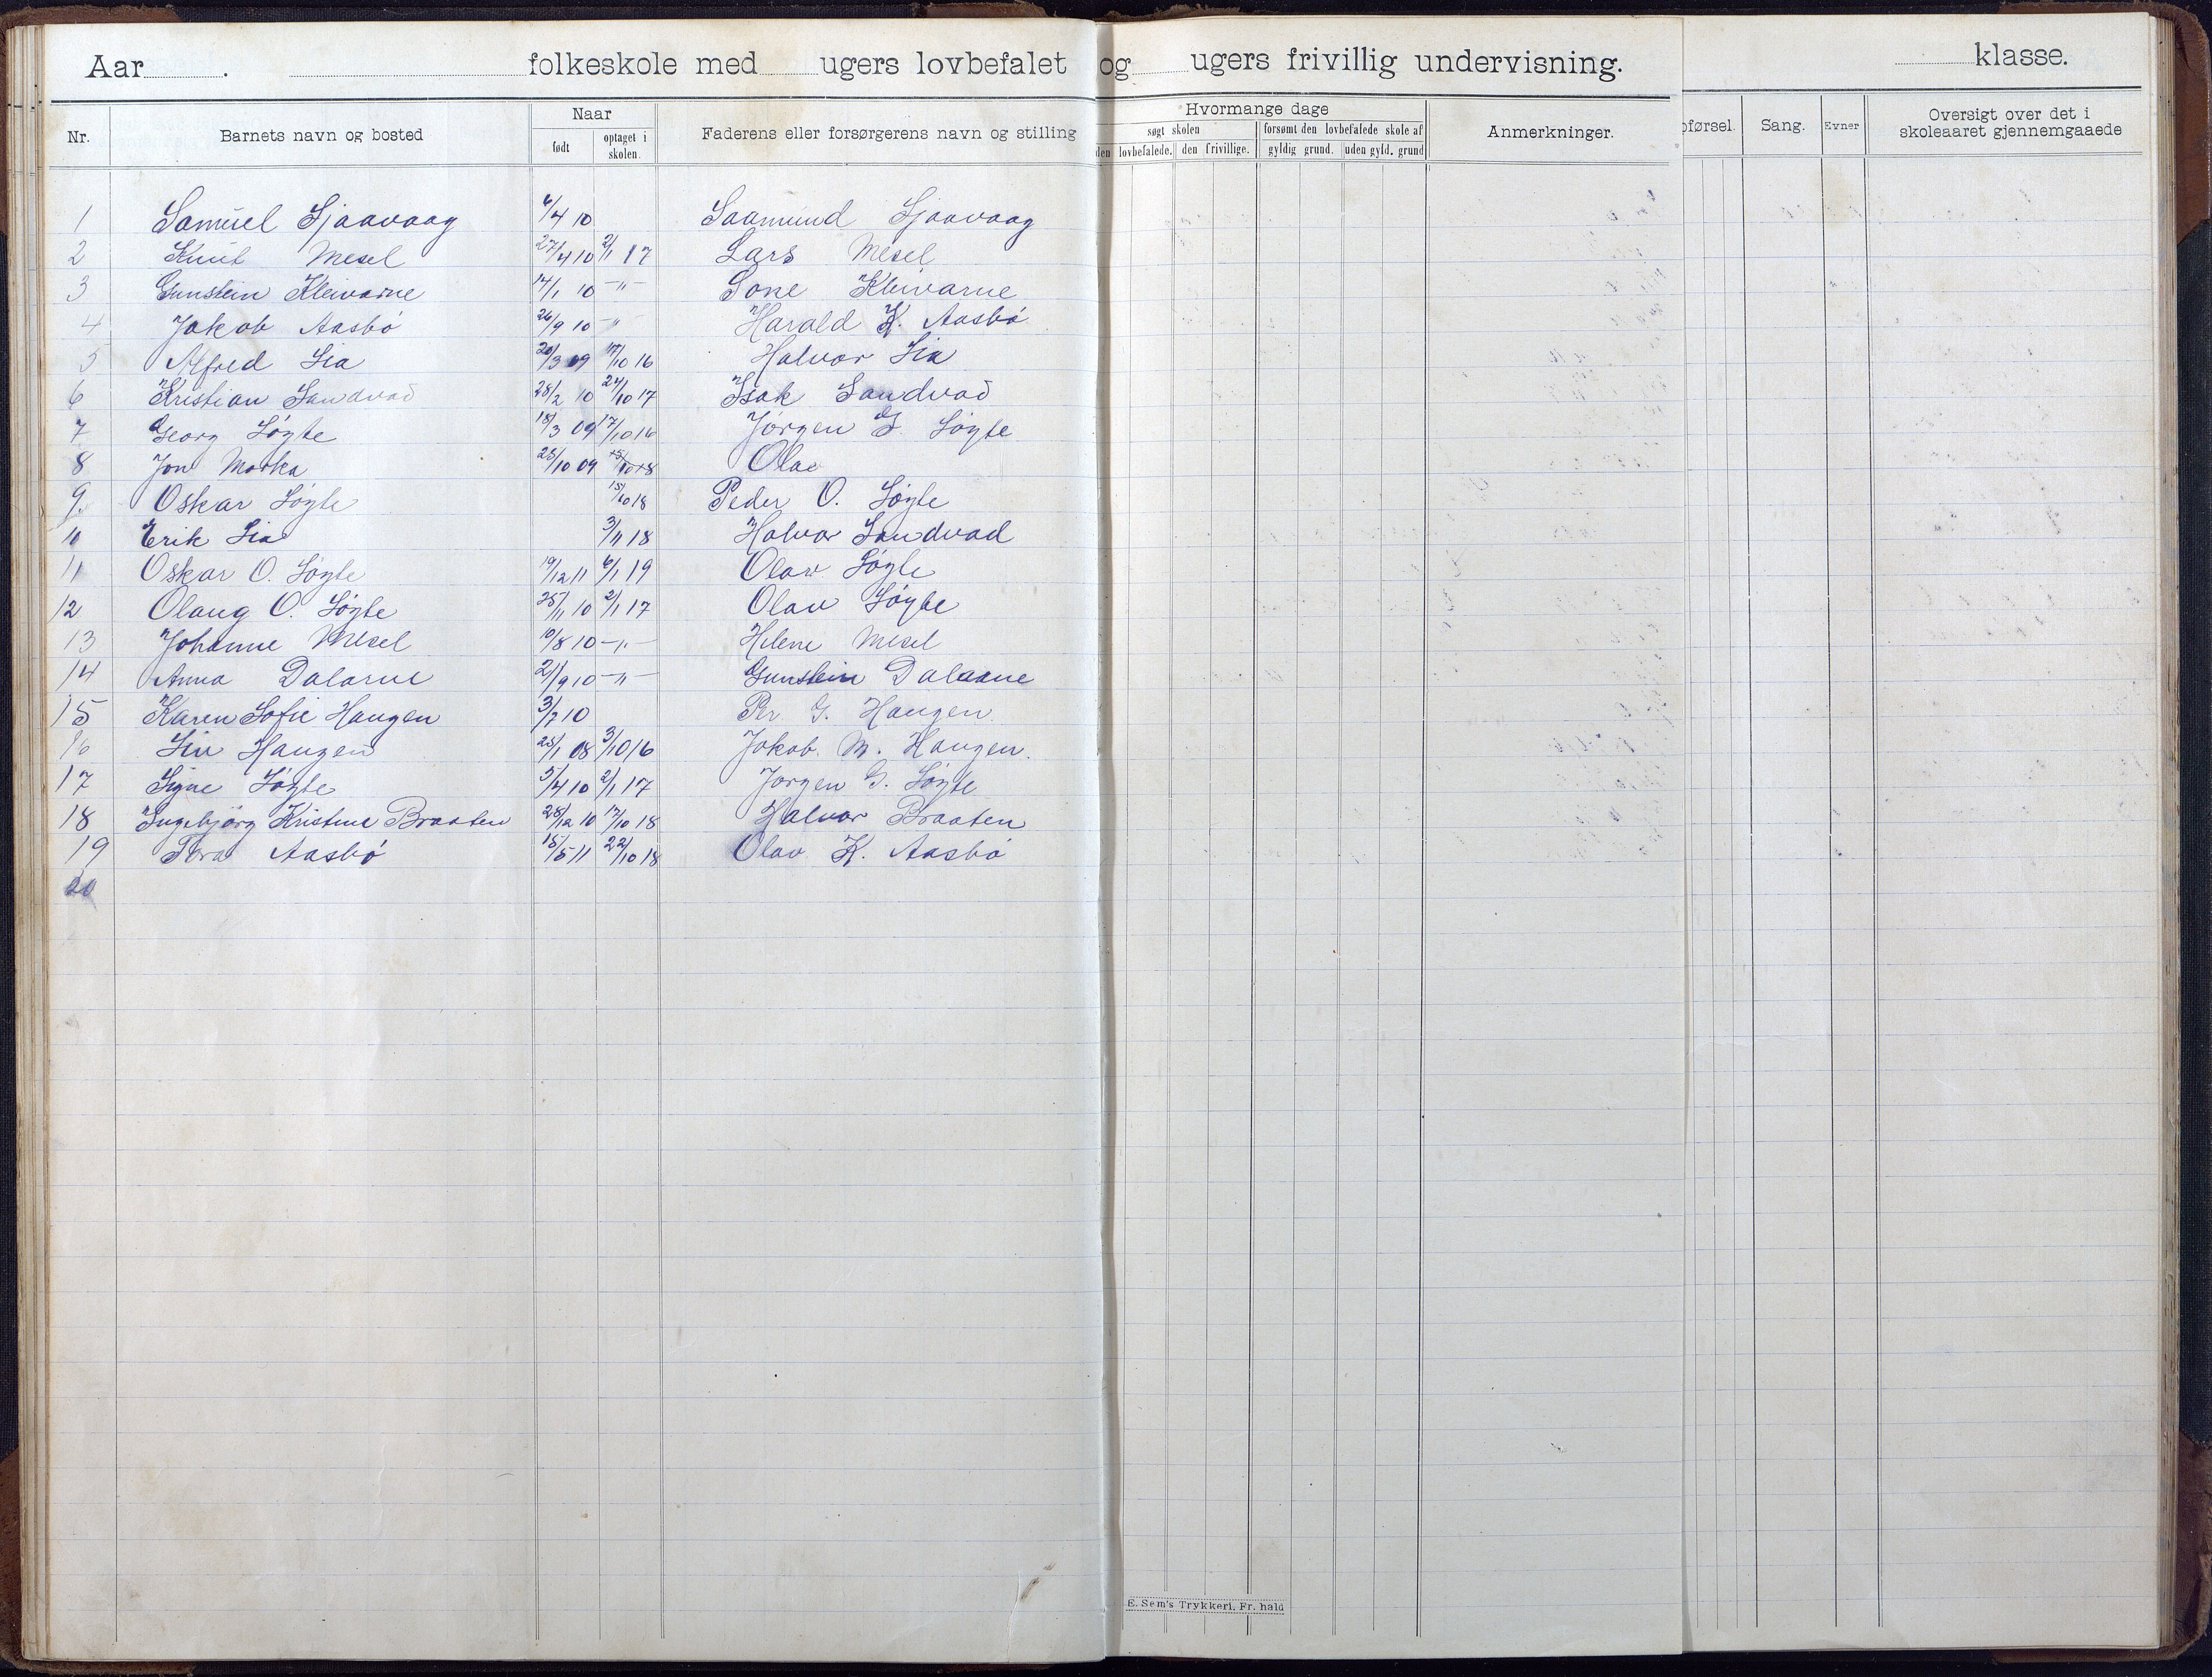 Aar ........ . ........ folkeskole med ...... ugers lovbefalet og ...... ugers frivillig undervisning. ........ klasse.
Nr. Barnets navn og bosted Naar født optaget i skolen. Faderens eller forsørgerens navn og stilling Hvormange dage søgt skolen den lovbefalede. den frivillige. forsømt den lovbefalede skole af gyldig grund. uden gyld. grund Anmerkninger. oførsel. Sang. Evner Oversigt over det i skoleaaret gjennemgaaede
1 Samuel Sjaavaag 6/4 10 Saamund Sjaavaag
2 Knut Mesel 27/4 10 2/1 17 Lars Mesel
3 Gunstein Kleivarne 14/1 10 -"- Tone Kleivarne
4 Jakob Aasbø 26/9 10 -"- Harald K. Aasbø
5 Alfred Lia 20/3 09 17/10 16 Halvor Lia
6 Kristian Sandvad 28/2 10 24/10 17 Isak Sandvad
7 Georg Løyte 18/3 09 17/10 16 Jørgen G. Løyte
8 Jon Morka 25/10 09 15/10 18 Olav
9. Oskar Løyte 15/10 18 Peder O. Løyte
10 Erik Lia 3/11 18 Halvor Sandvad
11 Oskar O. Løyte 19/12 11 6/1 19 Olav Løyte
12 Olaug O. Løyte 25/11 10 2/1 17 Olav Løyte
13 Johanne Mesel 10/8 10 -"- Helene Mesel
14 Anna Dalarne 21/9 10 -"- Gunstein Dalaane
15 Karen Sofie Haugen 3/7 10 Per G. Haugen
16 Liv Haugen 25/1 08 3/10 16 Jakob M. Haugen.
17 Signe Løyte 5/4 10 2/1 17 Jørgen G. Løyte
18 Ingebjørg Kristine Braaten 28/12 10 17/10 18 Halvor Braaten
19 Tora Aasbø 15/5 11 22/10 18 Olav K. Aasbø
20
E. Sem's Trykkeri, Fr. hald